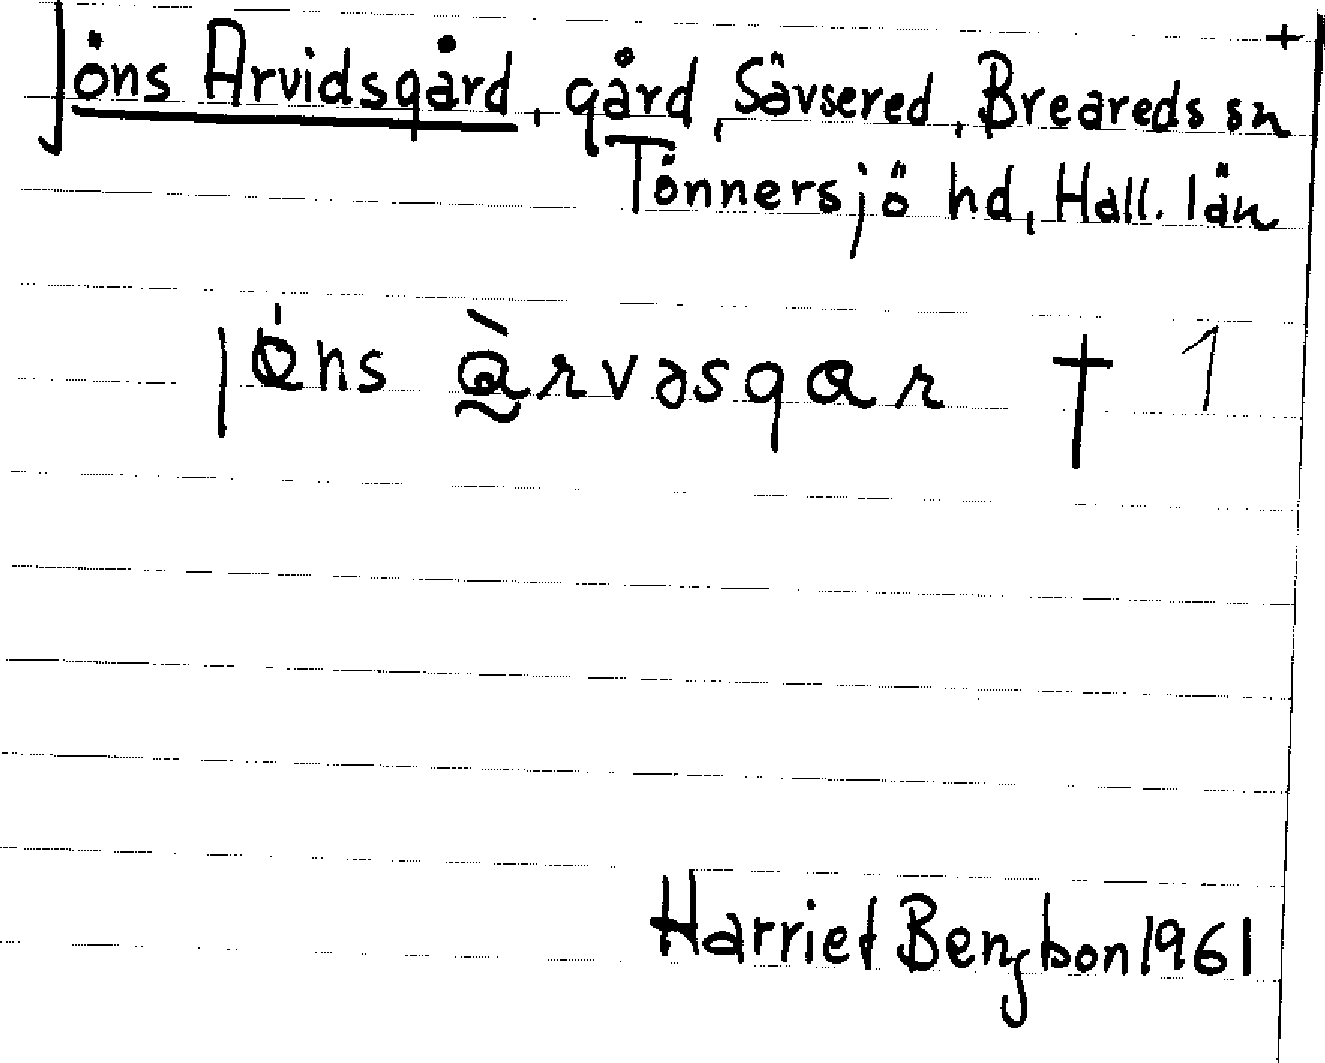 +
Jöns Arvidsgård, gård, Sävsered, Breareds sn
Tönnersjö hd, Hall. län
jöns àrvəsgar † 1
Harriet 1961